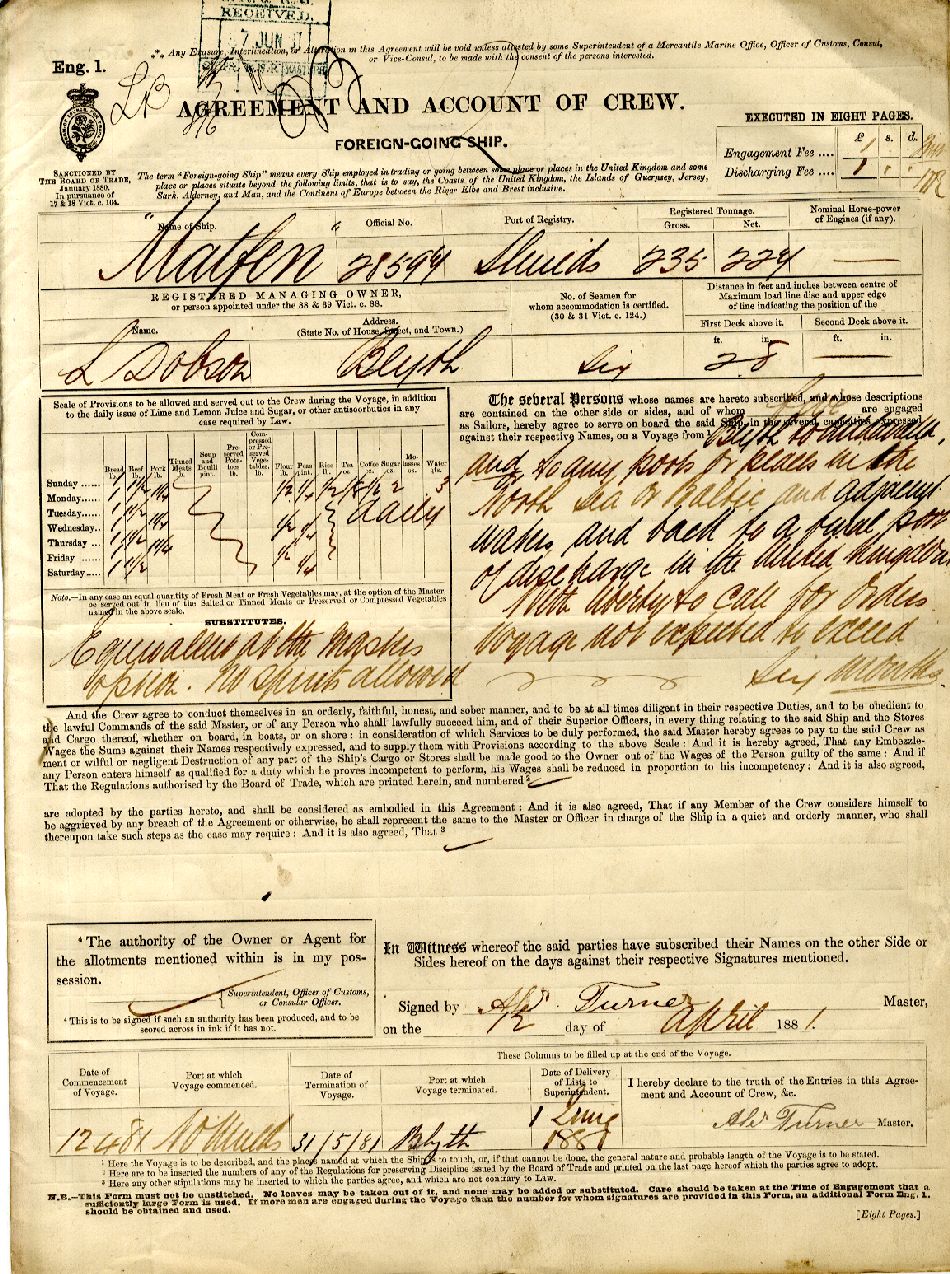 RECEIVED.
7 JUN
*, Any Erasure, Interlineation, or Alteration in this Agreement will be void unless attested by some Superintendent of a Mercantile Marine Office, Officer of Customs, Consul,
or Vice-Consul, to be made with the consent of the persons interested.
Eng. 1.
AGREEMENT AND ACCOUNT OF CREW.
FOREIGN-GOING SHIP.
EXECUTED IN EIGHT PAGES.
£ s. d.
Engagement Fee ....
Discharging Fee ...
SANCTIONED BY
THE BOARD OF TRADE,
January 1880.
In pursuance of
17 & 18 Vict. c. 104.
The term "Foreign-going Ship" means every Ship employed in trading or going between some place or places in the United Kingdom and some
place or places situate beyond the following limits, that is to say, the Coasts of the United Kingdom, the Islands of Guernsey, Jersey,
Sark, Alderney, and Man, and the Continent of Europe between the River Elbe and Brest inclusive.
Name of Ship.
Official No.
Port of Registry.
Registered Tonnage.
Gross.
Net.
Nominal Horse-power
of Engines (if any).
"Matfen" 28594 Shields 235 224
REGISTERED MANAGING OWNER,
or person appointed under the 38 & 39 Vict. c. 88.
Name.
Address.
(State No. of House, Street, and Town.)
No. of Seamen for
whom accommodation is certified.
(30 & 31 Vict. c. 124.)
Distance in feet and inches between centre of
Maximum load line disc and upper edge
of line indicating the position of the
First Deck above it.
Second Deck above it.
ft. in.
ft. in.
L Dobson Blyth Six 2 8
Scale of Provisions to be allowed and served out to the Crew during the Voyage, in addition
to the daily issue of Lime and Lemon Juice and Sugar, or other antiscorbutics in any
case required by Law.
Bread lb. Beef lb. Pork lb. Tinned Meats lb. Soup and Bouilli lb. Preserved Potatoes lb. Compressed or Preserved Vegetables. lb. Flour lb. Peas pint. Rice lb. Tea oz. Coffee oz. Sugar oz. Molasses oz. Water qts.
Sunday ......
Monday ......
Tuesday ......
daily
Wednesday ....
Thursday ....
Friday ......
Saturday......
Note.—In any case an equal quantity of Fresh Meat or Fresh Vegetables may, at the option of the Master
be served out in lieu of the Salted or Tinned Meats or Preserved or Compressed Vegetables
named in the above scale.
SUBSTITUTES.
Equivalents at the Masters
option. No spirits allowed
The several Persons whose names are hereto subscribed, and whose descriptions
are contained on the other side or sides, and of whom are engaged
as Sailors, hereby agree to serve on board the said Ship, in the several capacities expressed
against their respective Names, on a Voyage from Blyth to
and to any ports or places in the
North Sea or Baltic and adjacent
waters and back to a final port
of discharge in the United Kingdom
With liberty to call for Orders
Voyage not expected to exceed
Six Months
And the Crew agree to conduct themselves in an orderly, faithful, honest, and sober manner, and to be at all times diligent in their respective Duties, and to be obedient to
the lawful Commands of the said Master, or of any Person who shall lawfully succeed him, and of their Superior Officers, in every thing relating to the said Ship and the Stores
and Cargo thereof, whether on board, in boats, or on shore : in consideration of which Services to be duly performed, the said Master hereby agrees to pay to the said Crew as
Wages the Sums against their Names respectively expressed, and to supply them with Provisions according to the above Scale : And it is hereby agreed, That any Embezzle-
ment or wilful or negligent Destruction of any part of the Ship's Cargo or Stores shall be made good to the Owner out of the Wages of the Person guilty of the same : And if
any Person enters himself as qualified for a duty which he proves incompetent to perform, his Wages shall be reduced in proportion to his incompetency : And it is also agreed,
That the Regulations authorised by the Board of Trade, which are printed herein, and numbered²
are adopted by the parties hereto, and shall be considered as embodied in this Agreement : And it is also agreed, That if any Member of the Crew considers himself to
be aggrieved by any breach of the Agreement or otherwise, he shall represent the same to the Master or Officer in charge of the Ship in a quiet and orderly manner, who shall
thereupon take such steps as the case may require : And it is also agreed, That ³
⁴ The authority of the Owner or Agent for
the allotments mentioned within is in my pos-
session.
Superintendent, Officer of Customs,
or Consular Officer.
⁴ This is to be signed if such an authority has been produced, and to be
scored across in ink if it has not.
In Witness whereof the said parties have subscribed their Names on the other Side or
Sides hereof on the days against their respective Signatures mentioned.
Signed by Alexr. Turner Master,
on the 12 day of April 1881.
These Columns to be filled up at the end of the Voyage.
Date of
Commencement
of Voyage.
Port at which
Voyage commenced.
Date of
Termination of
Voyage.
Port at which
Voyage terminated.
Date of Delivery
of Lists to
Superintendent.
I hereby declare to the truth of the Entries in this Agree-
ment and Account of Crew, &c.
12 4 81 No Shields 31/5/81 Blyth 1 June 1881 Alexr Turner Master.
¹ Here the Voyage is to be described, and the places named at which the Ship is to touch, or, if that cannot be done, the general nature and probable length of the Voyage is to be stated.
² Here are to be inserted the numbers of any of the Regulations for preserving Discipline issued by the Board of Trade and printed on the last page hereof which the parties agree to adopt.
³ Here any other stipulations may be inserted to which the parties agree, and which are not contrary to Law.
N.B.—This Form must not be unstitched. No leaves may be taken out of it, and none may be added or substituted. Care should be taken at the Time of Engagement that a
sufficiently large Form is used. If more men are engaged during the Voyage than the number for whom signatures are provided in this Form, an additional Form Eng. 1.
should be obtained and used.
[Eight Pages.]